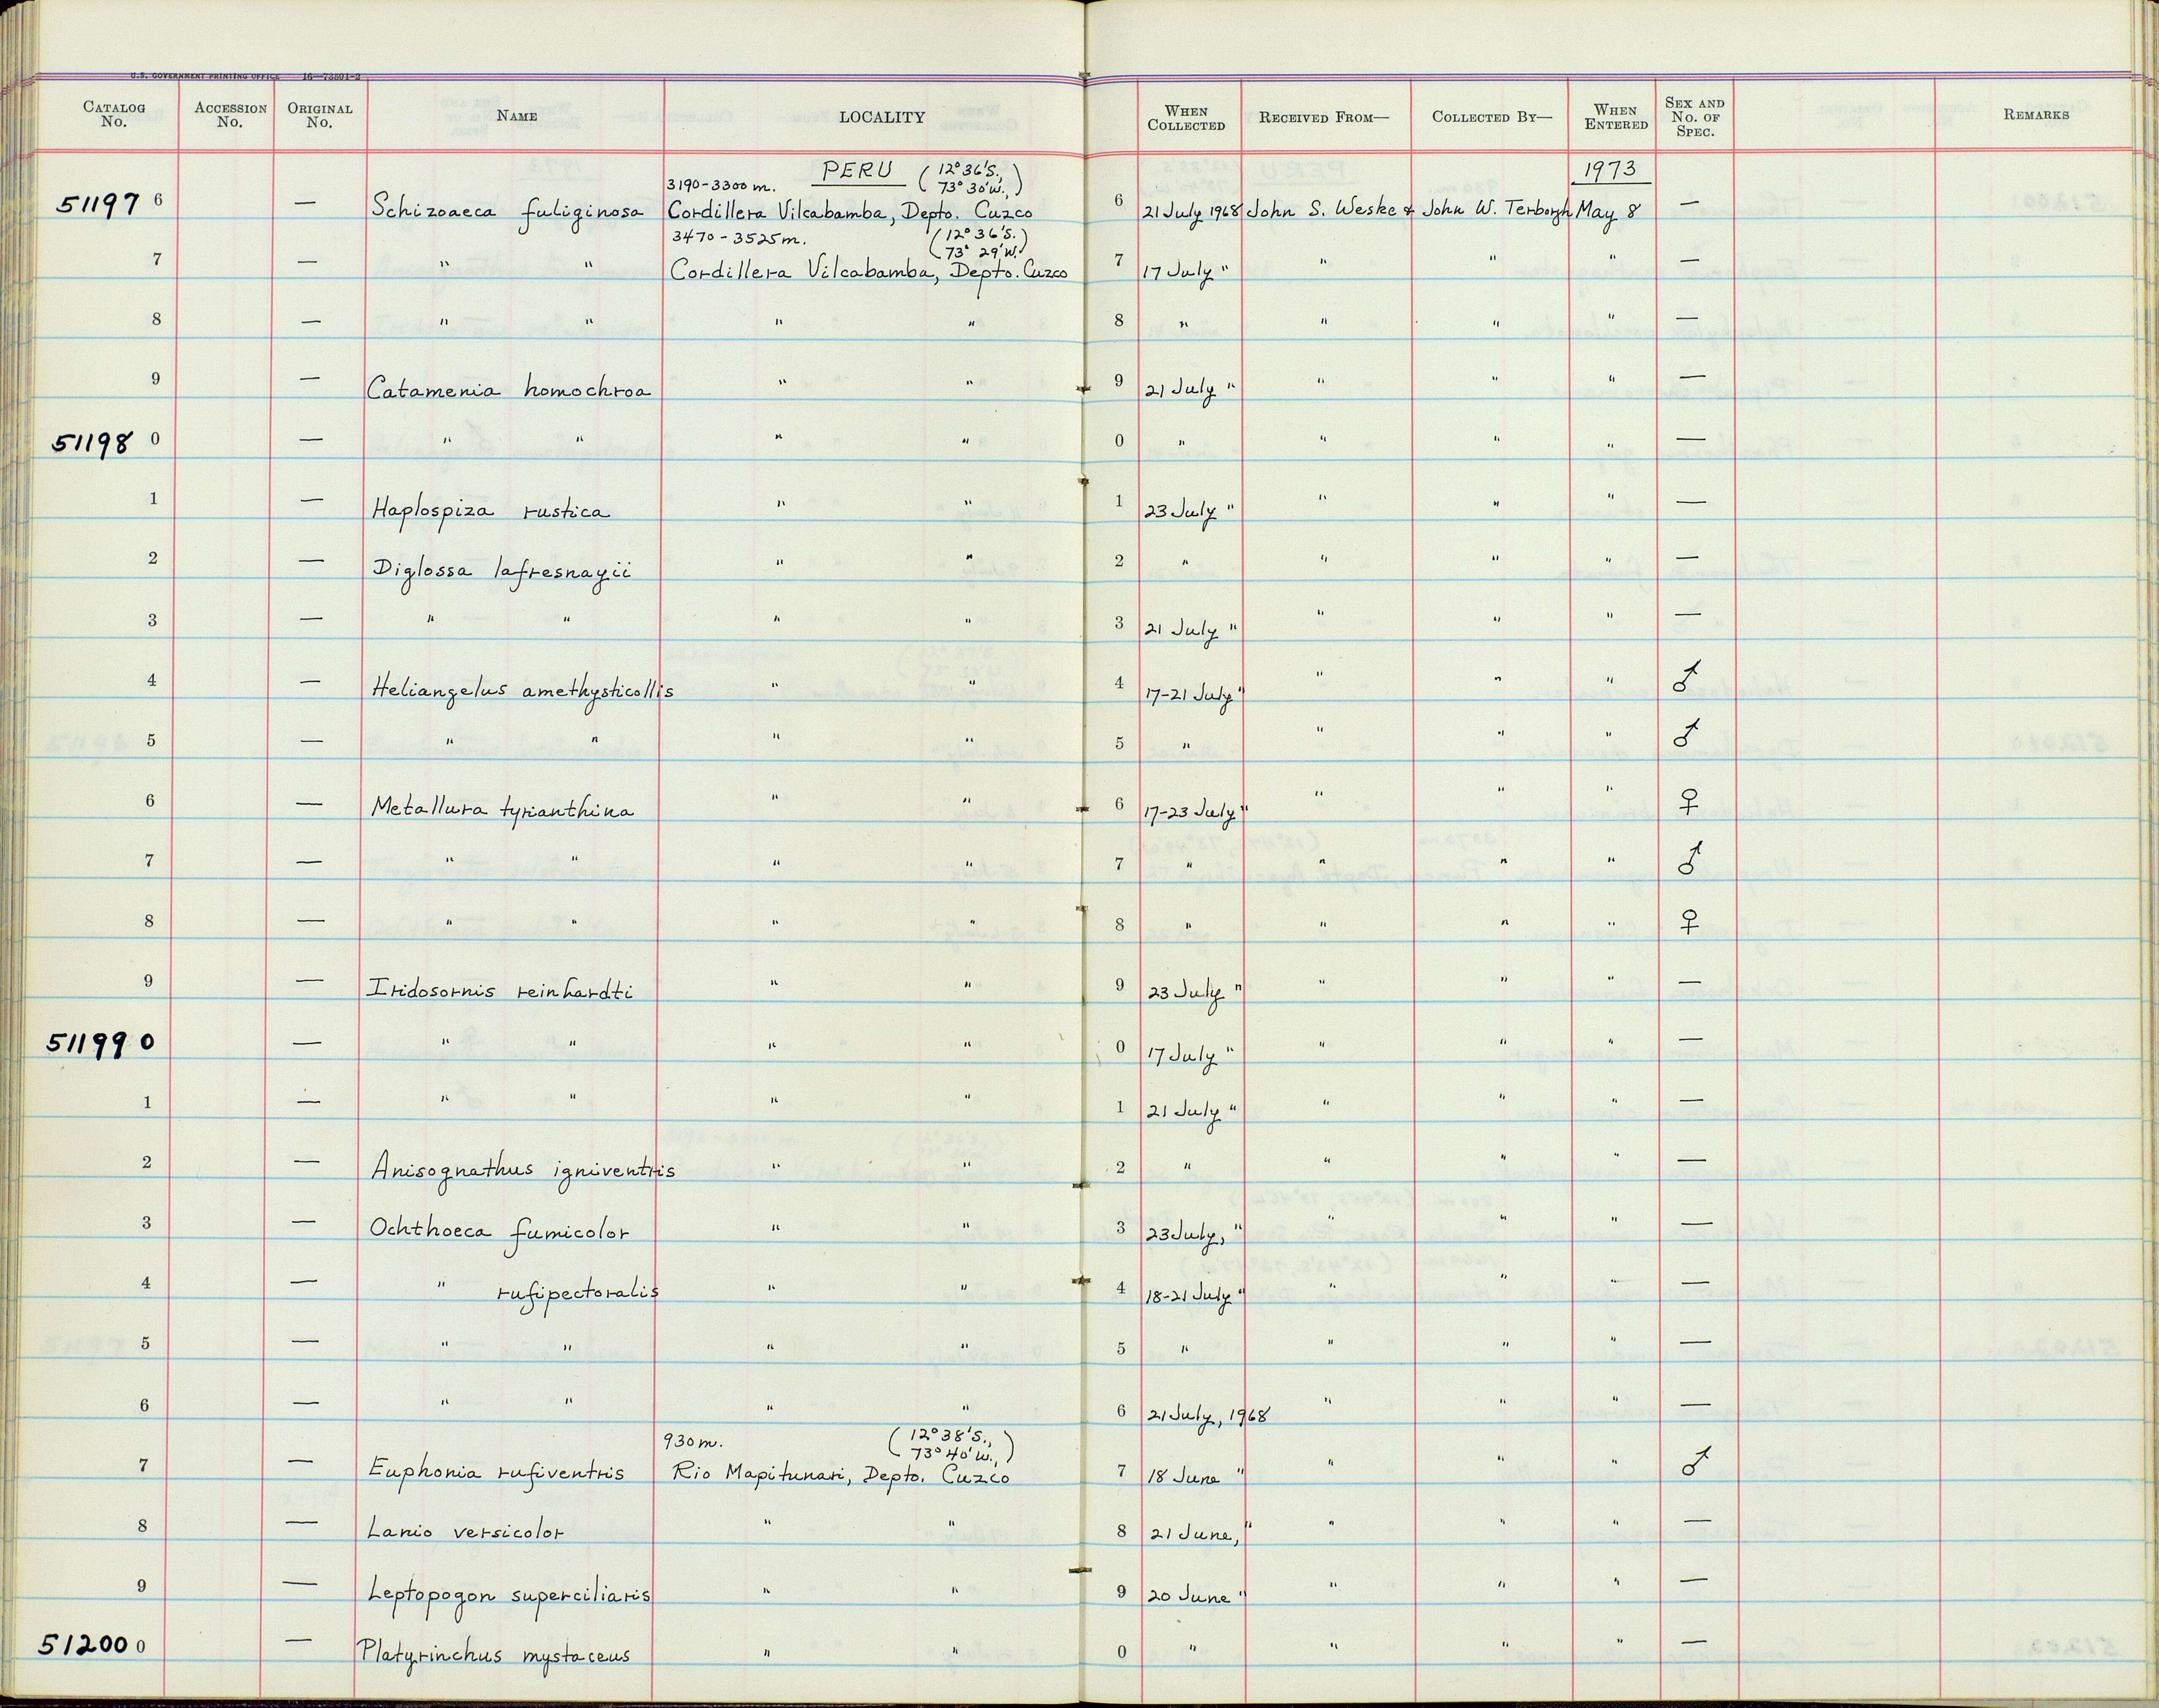 U.S. GOVERNMENT PRINTING OFFICE 16—73801-2
CATALOG No. ACCESSION No. ORIGINAL No. NAME LOCALITY WHEN COLLECTED RECEIVED FROM— COLLECTED BY— WHEN ENTERED SEX AND No. OF SPEC. REMARKS
3190-3300 m. PERU (12° 36'S., 73° 30'W.,) 1973
511976 — Schizoaeca fuliginosa Cordillera Vilcabamba, Depto. Cuzco 6 21 July 1968 John S. Weske & John W. Terborgh May 8 —
3470-3525m. (12° 36'S.) (73° 29'W.)
7 — " " Cordillera Vilcabamba, Depto. Cuzco 7 17 July " " " " —
8 — " " " " 8 " " " " —
9 — Catamenia homochroa " " 9 21 July " " " " —
511980 — " " " " 0 " " " " —
1 — Haplospiza rustica " " 1 23 July " " " " —
2 — Diglossa lafresnayii " " 2 " " " " —
3 — " " " " 3 21 July " " " " —
4 — Heliangelus amethysticollis " " 4 17-21 July " " " " ♂
5 — " " " " 5 " " " " ♂
6 — Metallura tyrianthina " " 6 17-23 July " " " " ♀
7 — " " " " 7 " " " " ♂
8 — " " " " 8 " " " " ♀
9 — Iridosornis reinhardti " " 9 23 July " " " " —
511990 — " " " " 0 17 July " " " " —
1 — " " " " 1 21 July " " " " —
2 — Anisognathus igniventris " " 2 " " " " —
3 — Ochthoeca fumicolor " " 3 23 July, " " " " —
4 — " rufipectoralis " " 4 18-21 July " " " " —
5 — " " " " 5 " " " " —
6 — " " " " 6 21 July, 1968 " " " —
930m. (12° 38'S., 73° 40'W.,)
7 — Euphonia rufiventris Rio Mapitunari, Depto. Cuzco 7 18 June " " " " ♂
8 — Lanio versicolor " " 8 21 June, " " " " —
9 — Leptopogon superciliaris " " 9 20 June " " " " —
512000 — Platyrinchus mystaceus " " 0 " " " " —